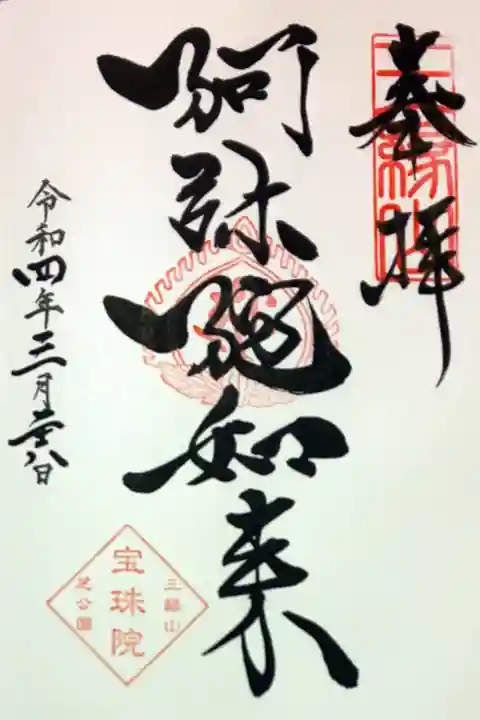 奉拝
阿弥陀如来
令和四年三月廿八日
三縁山
宝珠院
芝公園